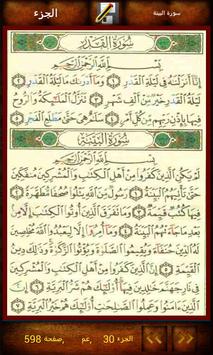 الجزء
سورة البينة
سُورَةُ القَدْرِ
بِسْمِ اللَّهِ الرَّحْمَٰنِ الرَّحِيمِ
إِنَّا أَنزَلْنَاهُ فِي لَيْلَةِ الْقَدْرِ ١ وَمَا أَدْرَاكَ مَا لَيْلَةُ الْقَدْرِ ٢
لَيْلَةُ الْقَدْرِ خَيْرٌ مِّنْ أَلْفِ شَهْرٍ ٣ تَنَزَّلُ الْمَلَائِكَةُ وَالرُّوحُ
فِيهَا بِإِذْنِ رَبِّهِم مِّن كُلِّ أَمْرٍ ٤ سَلَامٌ هِيَ حَتَّىٰ مَطْلَعِ الْفَجْرِ ٥
سُورَةُ البَيِّنَةِ
بِسْمِ اللَّهِ الرَّحْمَٰنِ الرَّحِيمِ
لَمْ يَكُنِ الَّذِينَ كَفَرُوا مِنْ أَهْلِ الْكِتَابِ وَالْمُشْرِكِينَ مُنفَكِّينَ
حَتَّىٰ تَأْتِيَهُمُ الْبَيِّنَةُ ١ رَسُولٌ مِّنَ اللَّهِ يَتْلُو صُحُفًا مُّطَهَّرَةً ٢
فِيهَا كُتُبٌ قَيِّمَةٌ ٣ وَمَا تَفَرَّقَ الَّذِينَ أُوتُوا الْكِتَابَ إِلَّا مِن بَعْدِ
مَا جَاءَتْهُمُ الْبَيِّنَةُ ٤ وَمَا أُمِرُوا إِلَّا لِيَعْبُدُوا اللَّهَ مُخْلِصِينَ لَهُ
الدِّينَ حُنَفَاءَ وَيُقِيمُوا الصَّلَاةَ وَيُؤْتُوا الزَّكَاةَ وَذَٰلِكَ دِينُ
الْقَيِّمَةِ ٥ إِنَّ الَّذِينَ كَفَرُوا مِنْ أَهْلِ الْكِتَابِ وَالْمُشْرِكِينَ
فِي نَارِ جَهَنَّمَ خَالِدِينَ فِيهَا أُولَٰئِكَ هُمْ شَرُّ الْبَرِيَّةِ ٦ إِنَّ
الَّذِينَ آمَنُوا وَعَمِلُوا الصَّالِحَاتِ أُولَٰئِكَ هُمْ خَيْرُ الْبَرِيَّةِ ٧
الجزء 30 ,عم ,صفحة 598